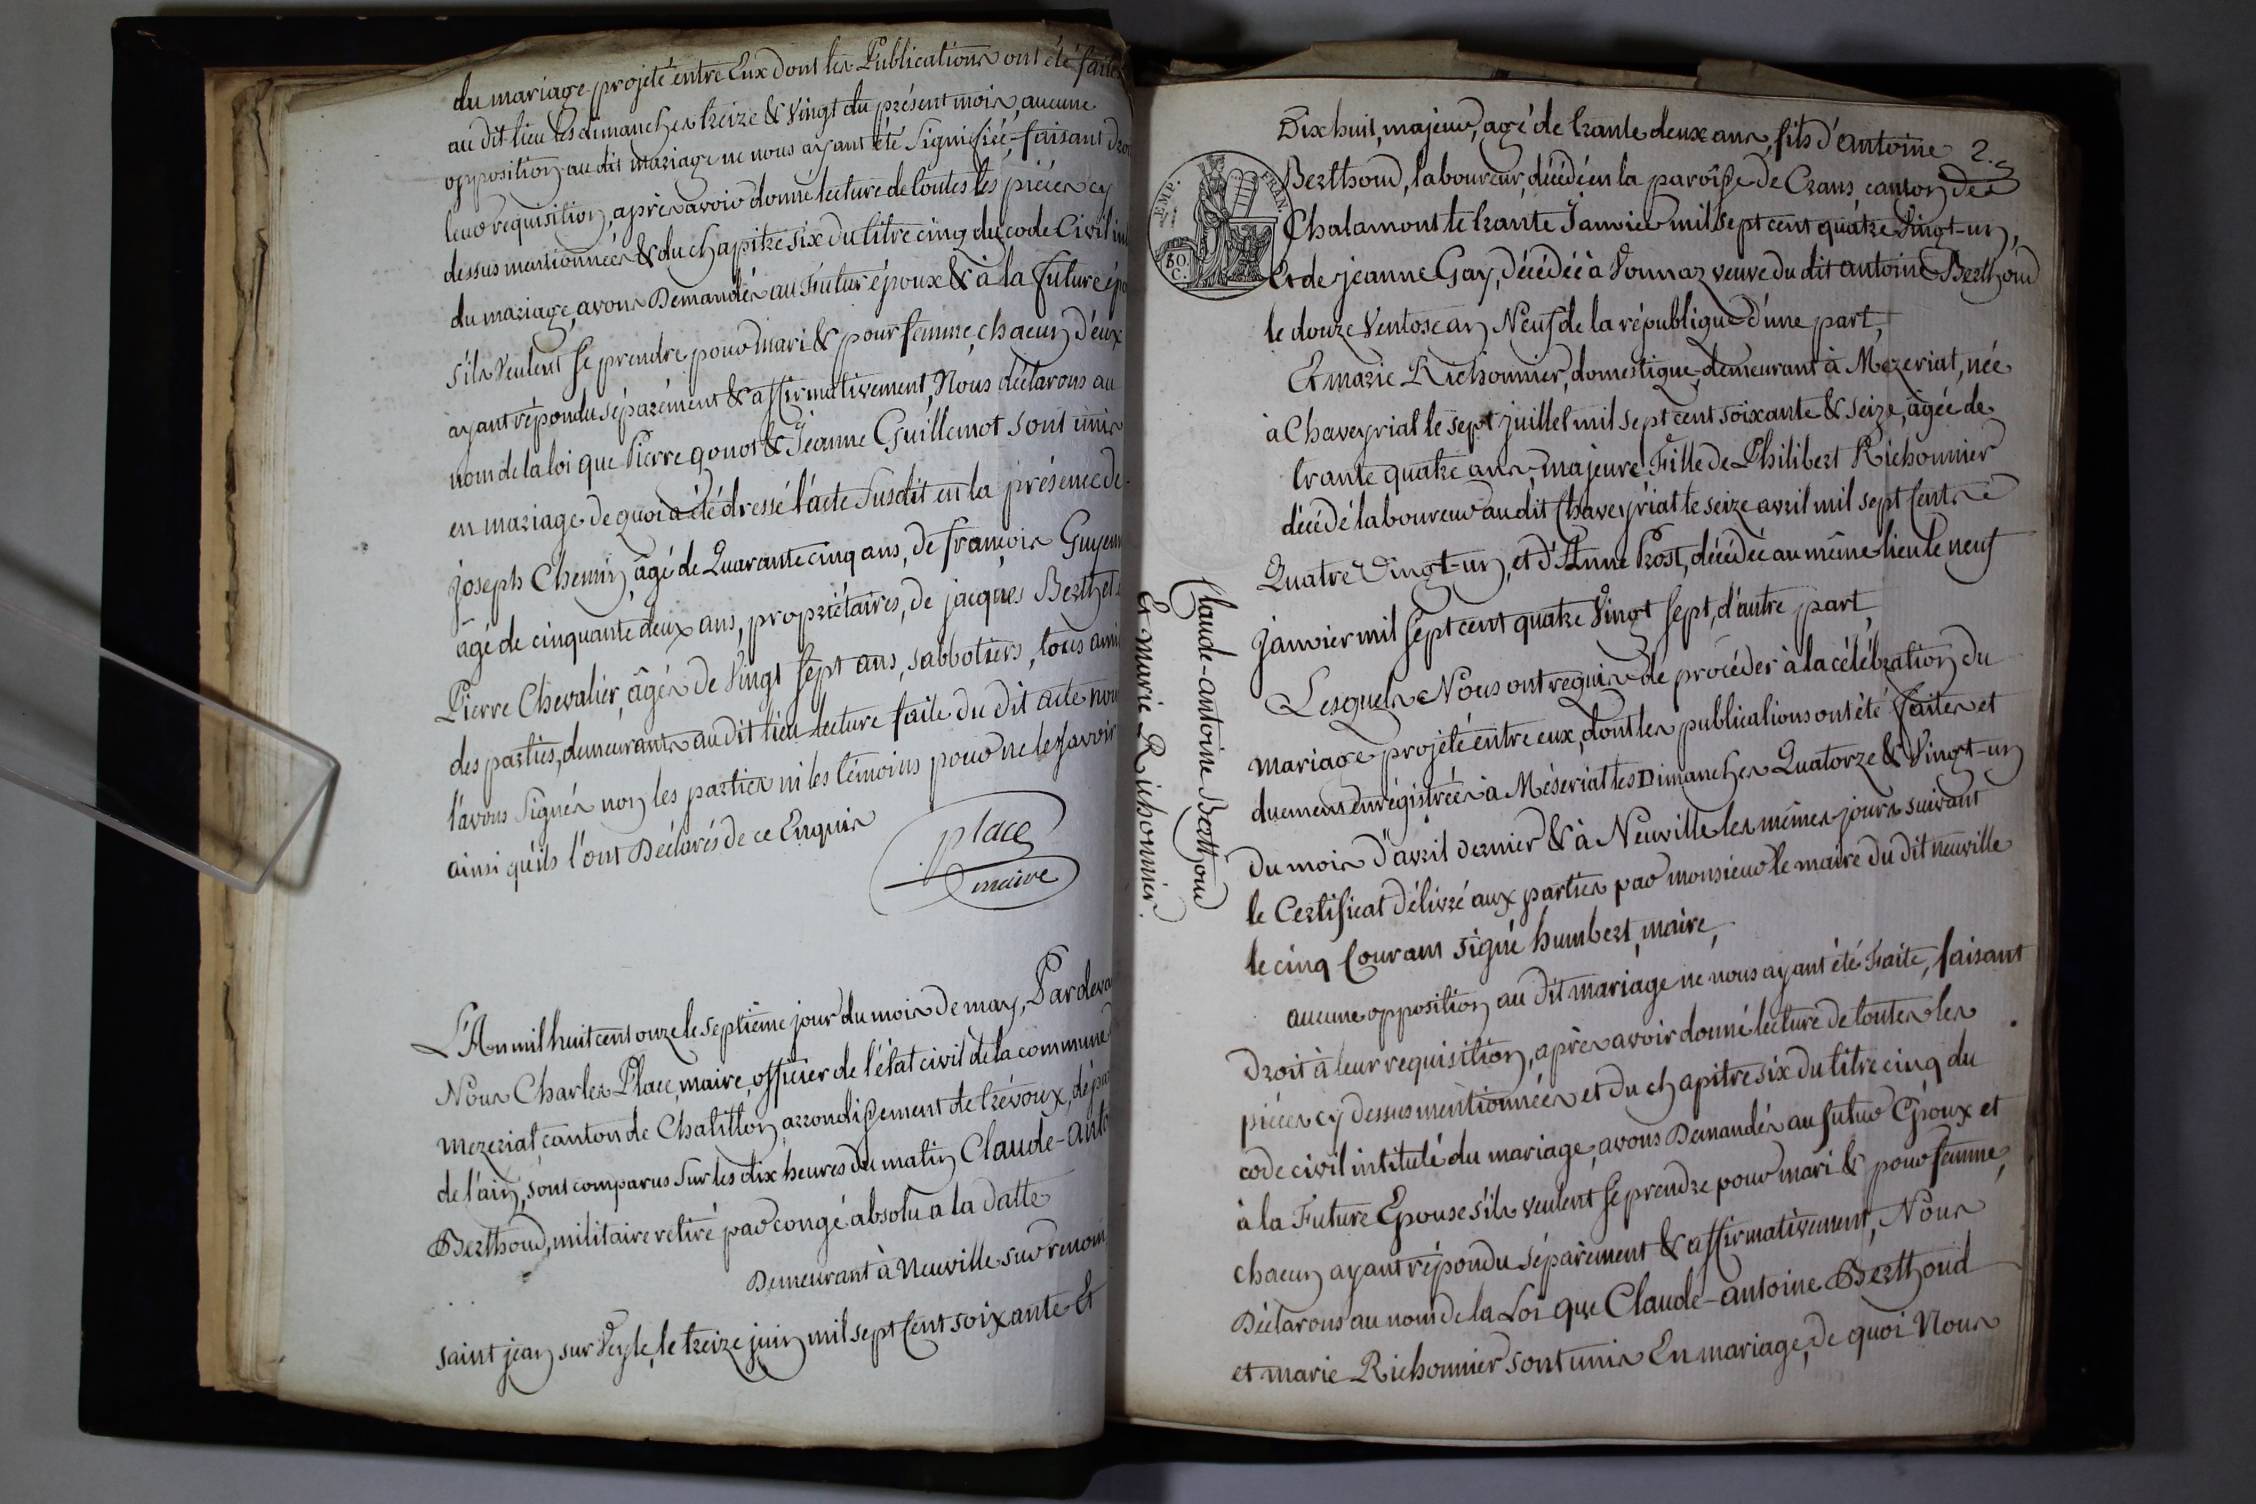 du mariage projeté entre Eux dont les Publications ont été faites
au dit lieu les dimanches treize & vingt du présent mois, aucune
opposition au dit mariage ne nous ayant été signifiée, faisant
leur requisition, après avoir donné lecture de toutes les pièces cy
dessus mentionnées & du chapitre six du titre cinq du code Civil
du mariage, avons Demandés au Futur époux & à la future
s'ils veulent se prendre pour mari & pour femme, chacun d'eux
ayant répondu séparément & affirmativement, Nous déclarons au
nom de la loi que Pierre gonot & Jéanne Guillemot sont unis
en mariage de quoi a été dressé l'acte susdit en la présence de
joseph Chemin, âgé de Quarante cinq ans, de françois
âgé de cinquante deux ans, propriétaires, de jacques
Pierre Chevalier, âgés de vingt sept ans, sabbotiers, tous amis
des parties, demeurants au dit lieu lecture faite du dit acte nous
l'avons signés non les parties ni les témoins pour ne le savoir
ainsi qu'ils l'ont Déclarés de ce Enquis
place
maire
L'An mil huit cent onze le septième jour du mois de may, Pardeva
Nous Charles Place, maire, officier de l'état civil de la commune
mezeriat, canton de Chatillon, arrondissement de trévoux, dépar
de l'ain, sont comparus sur les dix heures du matin Claude-anto
Berthoud, militaire retiré par congé absolu a la datte
Demeurant à Neuville sur renom
saint jean sur veyle, le treize juin mil sept Cent soixante Et
2.
Dix huit, majeur, agé de trante deux ans, fils d'antoine
Berthoud, laboureur, décédé en la paroisse de Crans, canton de
Chalamont le trante Janvier mil sept cent quatre Vingt-un,
Et de jeanne Gay, décédée à Vonnaz veuve du dit antoine Berthoud
le douze Ventose an Neuf de la république d'une part,
Et marie Richonnier, domestique, demeurant à Mézeriat, née
à Chaveyriat le sept juillet mil sept cent soixante & seize, âgée de
trante quatre ans, majeure, Fille de Philibert Richonnier
décédé laboureur au dit Chaveyriat le seize avril mil sept Cent
Quatre Vingt-un, et d'Anne Prost, décédée au même lieu le neuf
janvier mil sept cent quatre Vingt sept, d'autre part,
Lesquels Nous ont requis de procéder à la célébration du
mariage projété entre eux, dont les publications ont été faites et
duement enrégistrées à Méseriat les Dimanches Quatorze & Vingt-un
du mois d'avril dernier & à Neuville les mêmes jours suivant
le Certificat délivré aux parties par monsieur le maire du dit neuville
le cinq Courant signé humbert, maire,
aucune opposition au dit mariage ne nous ayant été Faite, faisant
Droit à leur requisition, après avoir donné lecture de toutes les
pièces cy dessus mentionnées et du chapitre six du titre cinq du
code civil intitulé du mariage, avons Demandés au futur Epoux et
à la Future Epouse s'ils veulent se prendre pour mari & pour femme,
chacun ayant répondu séparément & affirmativement, Nous
Déclarons au nom de la Loi que Claude-antoine Berthoud
et marie Richonnier sont unis En mariage, de quoi Nous
Claude-antoine Berthoud
Et marie Richonnier.
EMP. FRAN.
50 C.